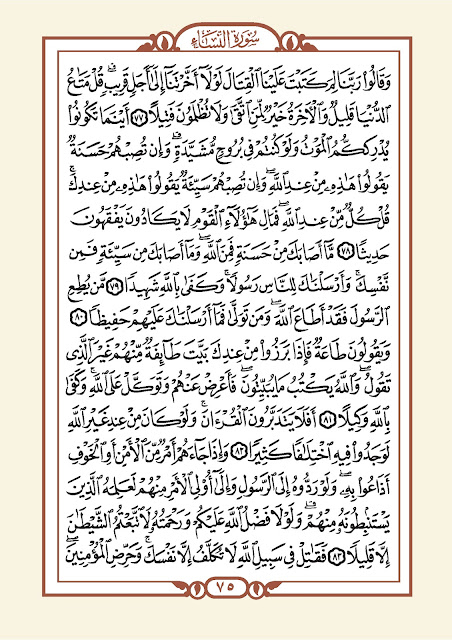 سُورَةُ النِّسَاءِ
وَقَالُوا۟ رَبَّنَا لِمَ كَتَبْتَ عَلَيْنَا ٱلْقِتَالَ لَوْلَآ أَخَّرْتَنَآ إِلَىٰٓ أَجَلٍ قَرِيبٍ ۗ قُلْ مَتَـٰعُ
ٱلدُّنْيَا قَلِيلٌ وَٱلْـَٔاخِرَةُ خَيْرٌ لِّمَنِ ٱتَّقَىٰ وَلَا تُظْلَمُونَ فَتِيلًا ٧٧ أَيْنَمَا تَكُونُوا۟
يُدْرِككُّمُ ٱلْمَوْتُ وَلَوْ كُنتُمْ فِى بُرُوجٍ مُّشَيَّدَةٍ ۗ وَإِن تُصِبْهُمْ حَسَنَةٌ
يَقُولُوا۟ هَـٰذِهِۦ مِنْ عِندِ ٱللَّهِ ۖ وَإِن تُصِبْهُمْ سَيِّئَةٌ يَقُولُوا۟ هَـٰذِهِۦ مِنْ عِندِكَ ۚ
قُلْ كُلٌّ مِّنْ عِندِ ٱللَّهِ ۖ فَمَالِ هَـٰٓؤُلَآءِ ٱلْقَوْمِ لَا يَكَادُونَ يَفْقَهُونَ
حَدِيثًا ٧٨ مَّآ أَصَابَكَ مِنْ حَسَنَةٍ فَمِنَ ٱللَّهِ ۖ وَمَآ أَصَابَكَ مِن سَيِّئَةٍ فَمِن
نَّفْسِكَ ۚ وَأَرْسَلْنَـٰكَ لِلنَّاسِ رَسُولًا ۚ وَكَفَىٰ بِٱللَّهِ شَهِيدًا ٧٩ مَّن يُطِعِ
ٱلرَّسُولَ فَقَدْ أَطَاعَ ٱللَّهَ ۖ وَمَن تَوَلَّىٰ فَمَآ أَرْسَلْنَـٰكَ عَلَيْهِمْ حَفِيظًا ٨٠
وَيَقُولُونَ طَاعَةٌ فَإِذَا بَرَزُوا۟ مِنْ عِندِكَ بَيَّتَ طَآئِفَةٌ مِّنْهُمْ غَيْرَ ٱلَّذِى
تَقُولُ ۖ وَٱللَّهُ يَكْتُبُ مَا يُبَيِّتُونَ ۖ فَأَعْرِضْ عَنْهُمْ وَتَوَكَّلْ عَلَى ٱللَّهِ ۚ وَكَفَىٰ
بِٱللَّهِ وَكِيلًا ٨١ أَفَلَا يَتَدَبَّرُونَ ٱلْقُرْءَانَ ۚ وَلَوْ كَانَ مِنْ عِندِ غَيْرِ ٱللَّهِ
لَوَجَدُوا۟ فِيهِ ٱخْتِلَـٰفًا كَثِيرًا ٨٢ وَإِذَا جَآءَهُمْ أَمْرٌ مِّنَ ٱلْأَمْنِ أَوِ ٱلْخَوْفِ
أَذَاعُوا۟ بِهِۦ ۖ وَلَوْ رَدُّوهُ إِلَى ٱلرَّسُولِ وَإِلَىٰٓ أُو۟لِى ٱلْأَمْرِ مِنْهُمْ لَعَلِمَهُ ٱلَّذِينَ
يَسْتَنۢبِطُونَهُۥ مِنْهُمْ ۗ وَلَوْلَا فَضْلُ ٱللَّهِ عَلَيْكُمْ وَرَحْمَتُهُۥ لَٱتَّبَعْتُمُ ٱلشَّيْطَـٰنَ
إِلَّا قَلِيلًا ٨٣ فَقَـٰتِلْ فِى سَبِيلِ ٱللَّهِ لَا تُكَلَّفُ إِلَّا نَفْسَكَ ۚ وَحَرِّضِ ٱلْمُؤْمِنِينَ ۖ
٧٥